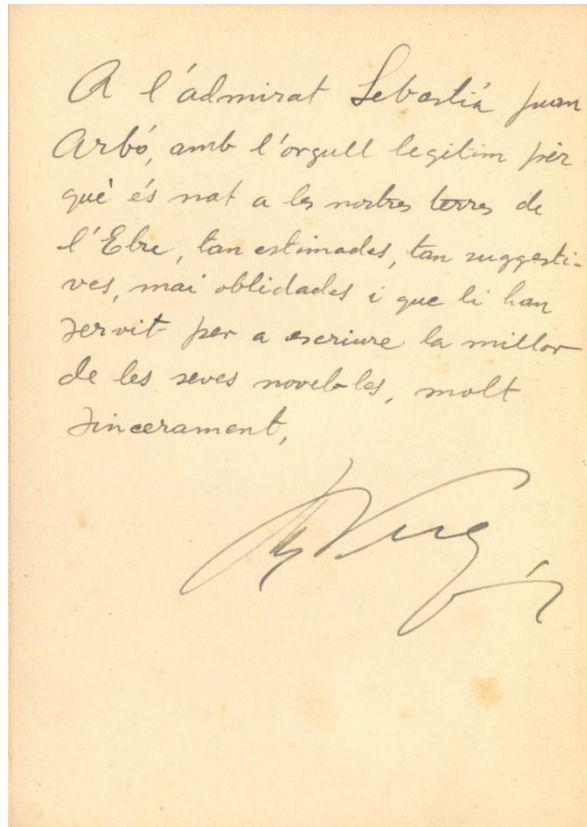 A l'admirat Sebastià Juan
Arbó, amb l'orgull legitim pèr
què és nat a les nostres terres de
l'Ebre, tan estimades, tan suggesti-
ves, mai oblidades i que li han
servit per a escriure la millor
de les seves novel·les, molt
sincerament,